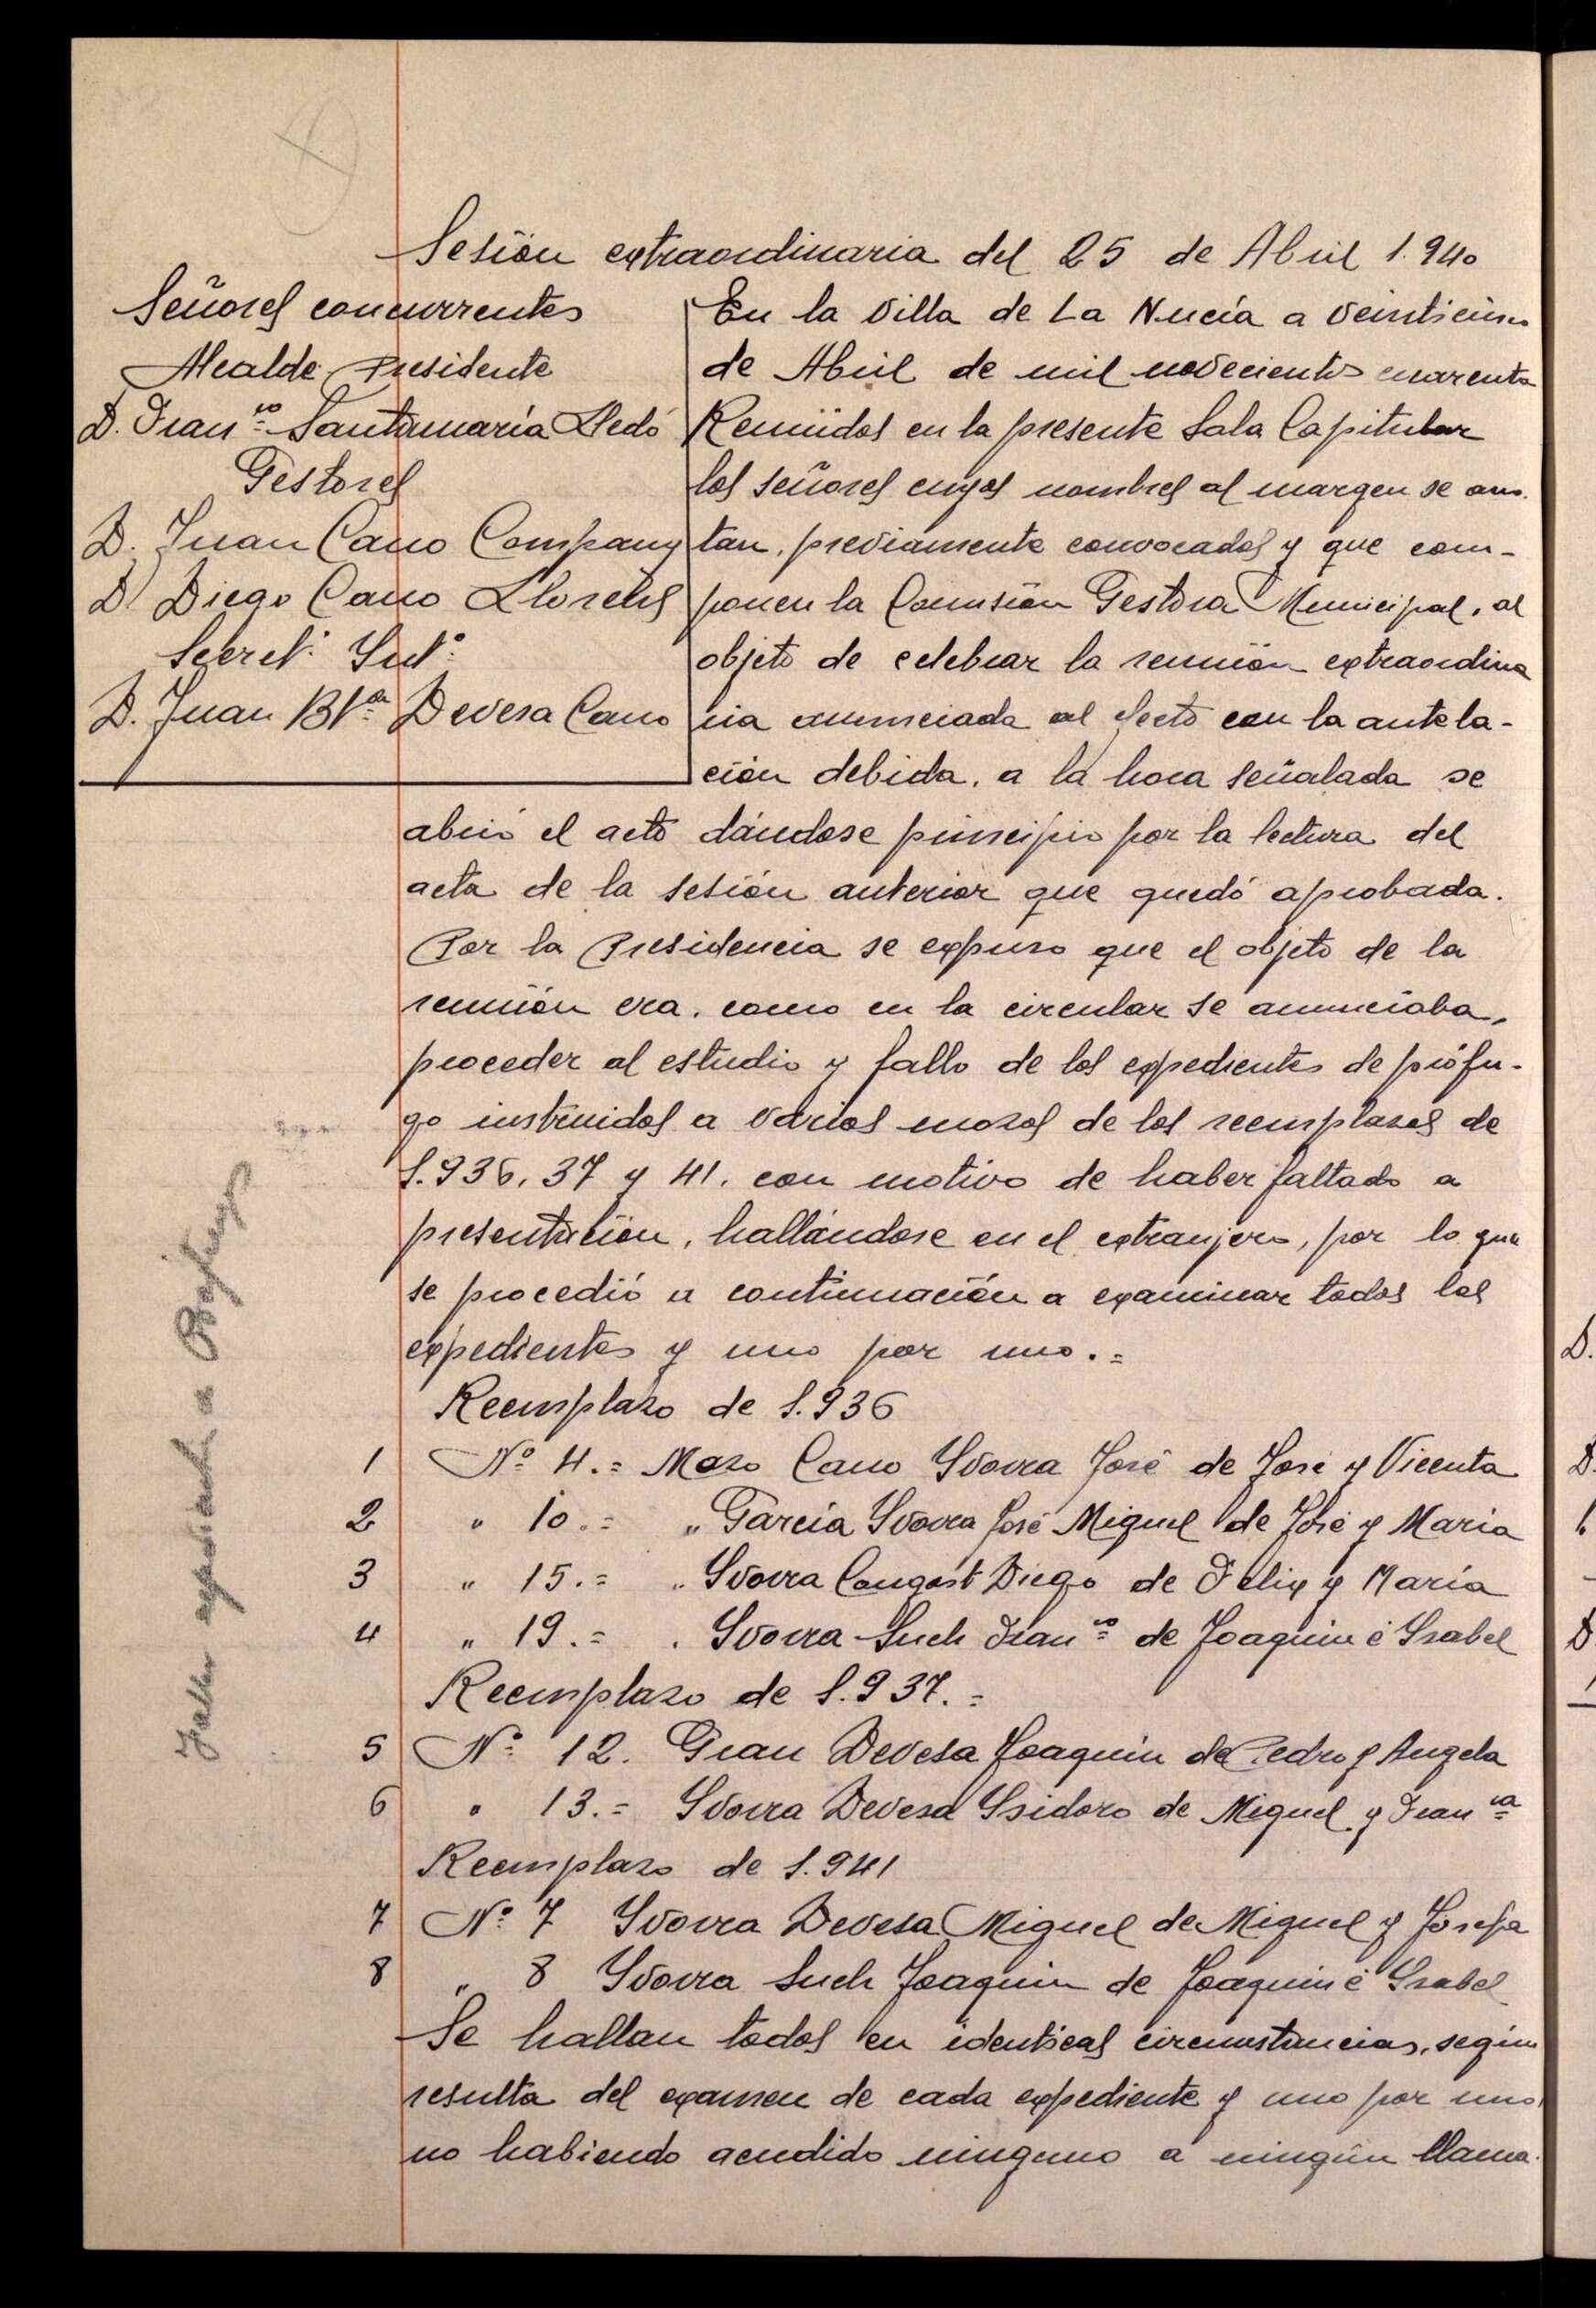 Sesión extraordinaria del 25 de Abril 1.940
Señores concurrentes
Alcalde Presidente
D. Franco Santamaría Lledó
Gestores
D. Juan Cano Company
D. Diego Cano Llorens
Secret. Int.
D. Juan Bta Devesa Cano
En la Villa de La Nucía a veinticinco
de Abril de mil novecientos cuarenta
Reunidos en la presente Sala Capitular
los señores cuyos nombres al margen se ano-
tan, previamente convocados y que com-
ponen la Comisión Gestora Municipal, al
objeto de celebrar la reunión extraordina
ria anunciada al efecto con la antela-
ción debida, a la hora señalada se
abrió el acto dándose principio por la lectura del
acta de la sesión anterior que quedó aprobada.
Por la Presidencia se expuso que el objeto de la
reunión era, como en la circular se anunciaba,
proceder al estudio y fallo de los expedientes de prófu-
go instruidos a varios mozos de los reemplazos de
1.936, 37 y 41, con motivo de haber faltado a
presentación, hallándose en el extranjero, por lo que
se procedió a continuación a examinar todos los
expedientes y uno por uno.=
Reemplazo de 1.936
1 Nº 4.= Mozo Cano Ivorra José de José y Vicenta
2 " 10.= " García Ivorra José Miguel de José y María
3 " 15.= " Ivorra Congost Diego de Felix y María
4 " 19.= " Ivorra Such Franco de Joaquin é Isabel
Reemplazo de 1.937.=
5 Nº 12. Grau Devesa Joaquin de Pedro y Angela
6 " 13.= Ivorra Devesa Isidoro de Miguel y Franca
Reemplazo de 1.941
7 Nº 7 Ivorra Devesa Miguel de Miguel y Josefa
8 " 8 Ivorra Such Joaquin de Joaquin é Isabel
Se hallan todos en identicas circunstancias, según
resulta del examen de cada expediente y uno por uno,
no habiendo acudido ninguno a ningún llama-
Fallos expedientes a Prófugos